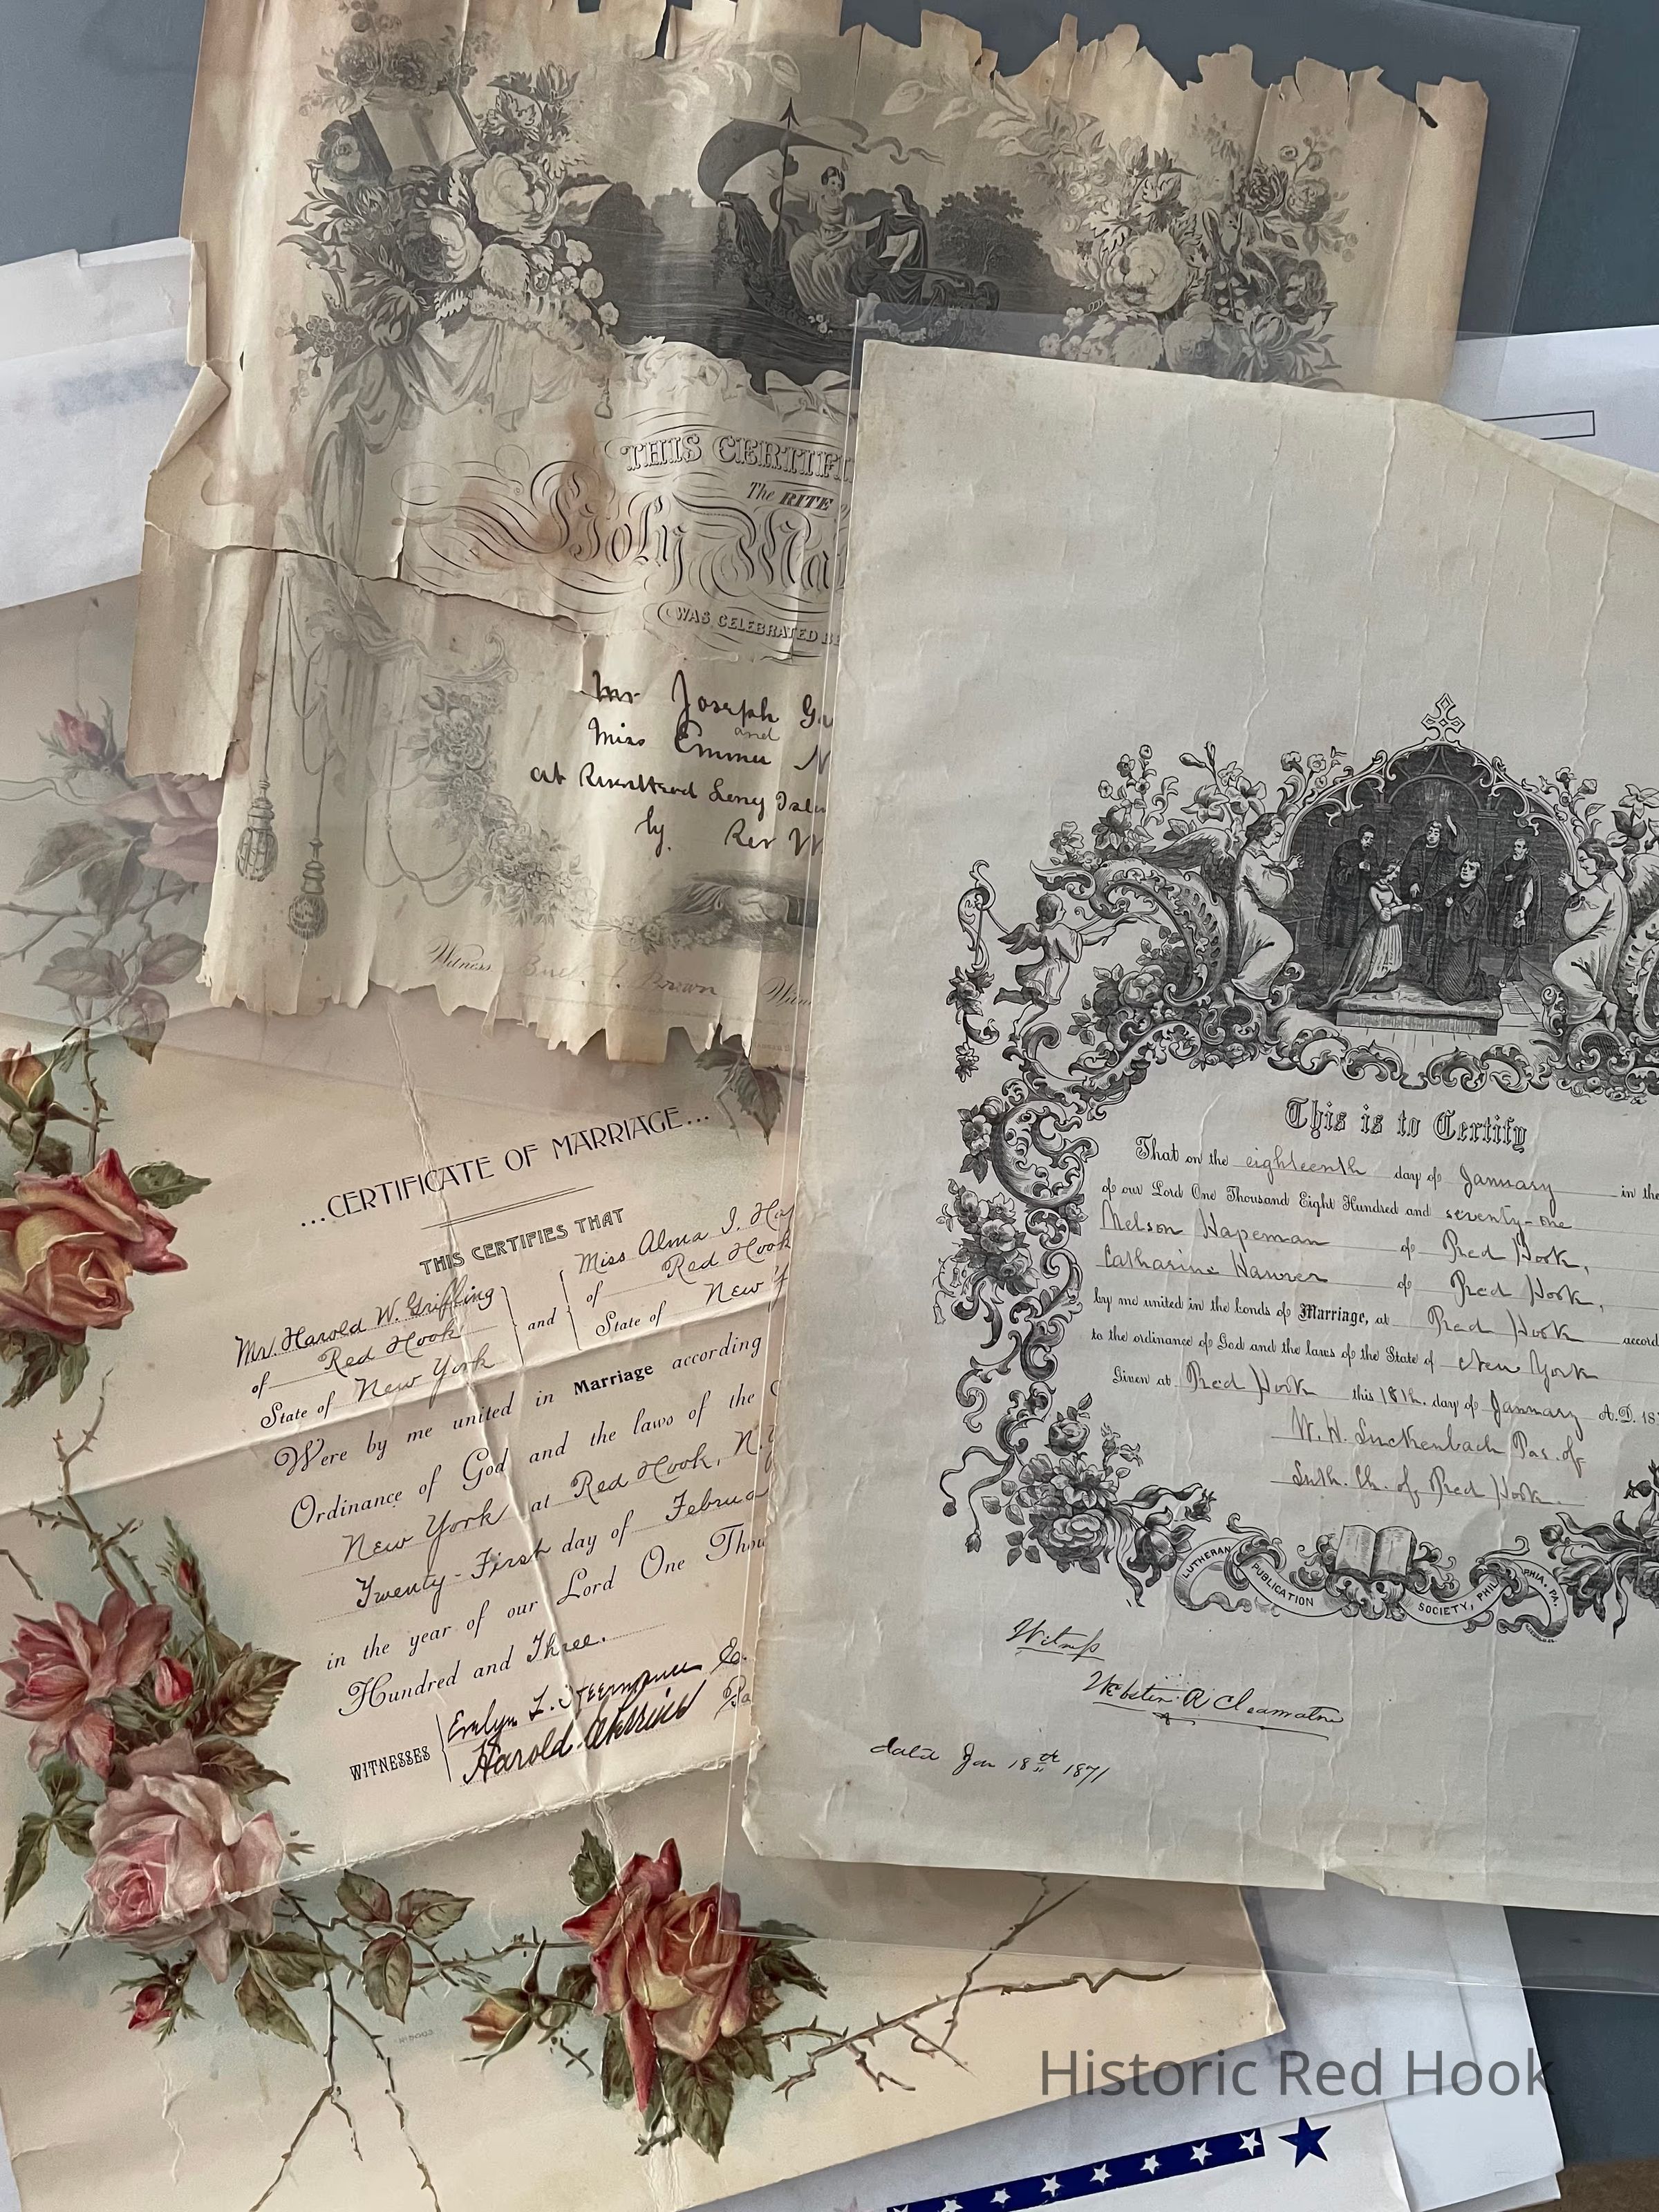 THIS CERTIFI
The RITE
Holy Mat
WAS CELEBRATED BE
Mr Joseph
and
Miss Emma N
at Riverhead Long Islan
by Rev W
Witness Brown
...CERTIFICATE OF MARRIAGE...
THIS CERTIFIES THAT
Mr. Harold W. Griffing
of Red Hook
State of New York
and
Miss Alma I. Ha
of Red Hook
State of New Y
Were by me united in Marriage according
Ordinance of God and the laws of the
New York at Red Hook, N.Y
Twenty-First day of Februa
in the year of our Lord One Thou
Hundred and Three.
WITNESSES
Harold
This is to Certify
That on the eighteenth day of January in the
of our Lord One Thousand Eight Hundred and seventy-one
Nelson Hapeman of Red Hook,
Catharine Hawver of Red Hook,
by me united in the bonds of Marriage, at Red Hook accord
to the ordinance of God and the laws of the State of New York
Given at Red Hook this 18th. day of January A.D. 187
W. H. Luckenbach Pas. of
Luth. Ch. of Red Hook.
LUTHERAN PUBLICATION SOCIETY, PHILADELPHIA, PA.
Witness
Webster R
datd Jan 18th 1871
Historic Red Hook